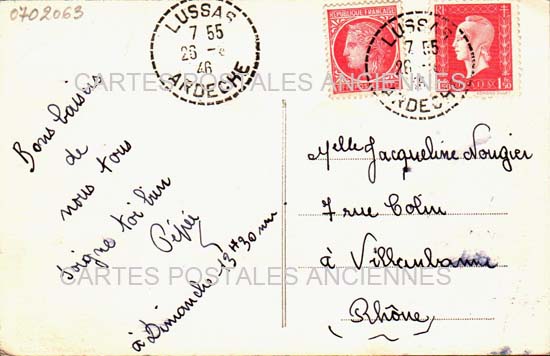 0702063
LUSSAS
7 55
26 -4
46
ARDECHE
REPUBLIQUE FRANÇAISE
LUSSAS
7 55
26
ARDECHE
1F50
CARTES POSTALES ANCIENNES
Bons baisers
de
nous tous
soigne toi bien
Pépée
à Dimanche - 13H30
Melle Jacqueline Nougier
7 rue Colin
à Villeurbanne
Rhône
CARTES POSTALES ANCIENNES